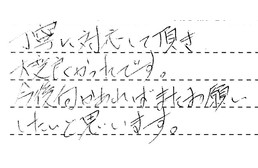 丁寧に対応して頂き
大変良かったです。
今後何かあればまたお願い
したいと思います。